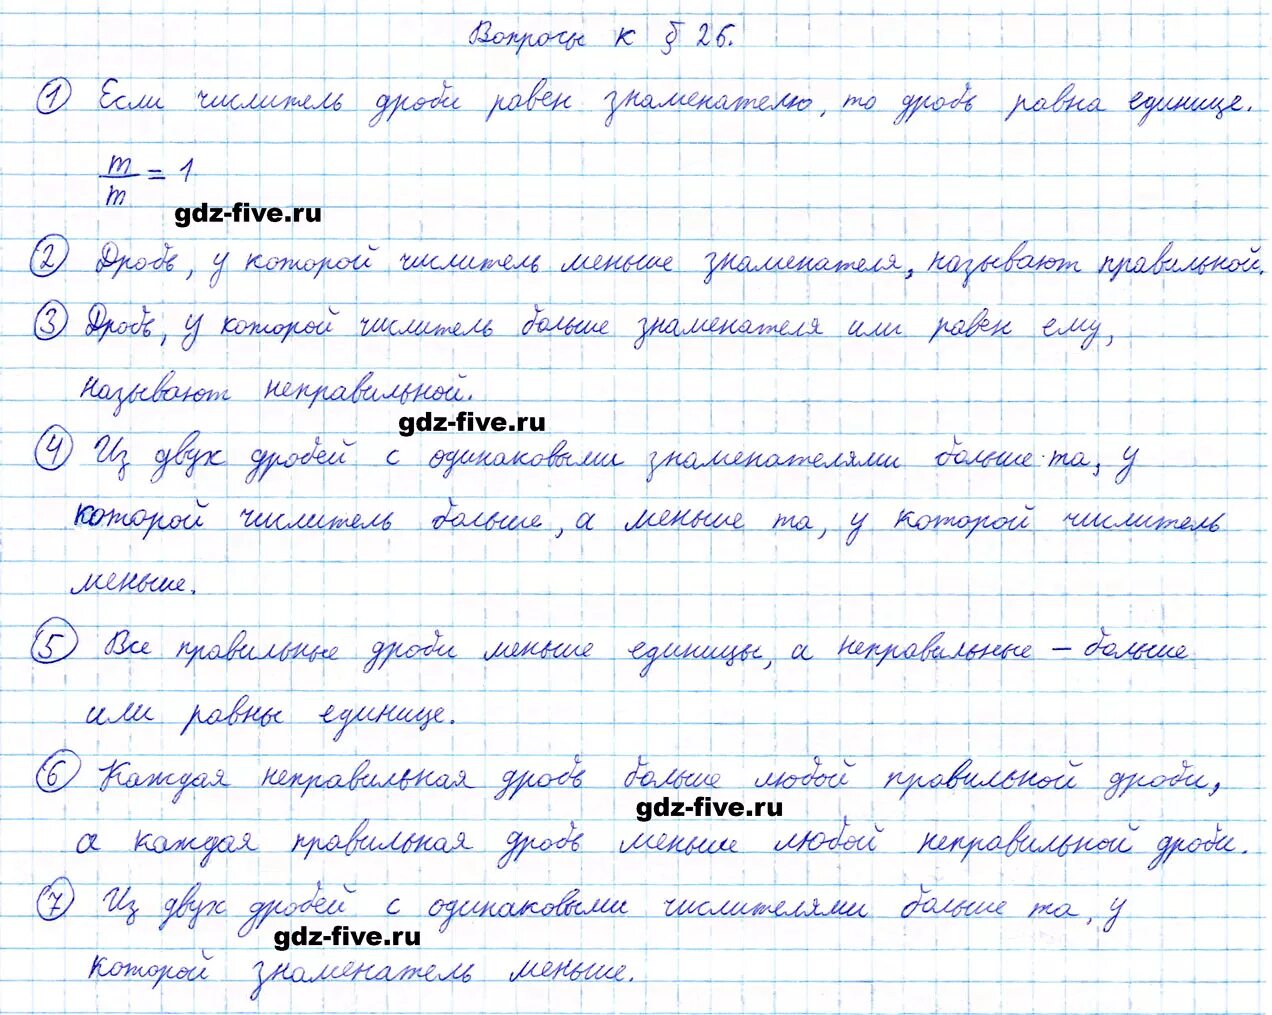 Вопросы к § 26.
① Если числитель дроби равен знаменателю, то дробь равна единице.
m/m = 1
gdz-five.ru
② Дробь, у которой числитель меньше знаменателя, называют правильной.
③ Дробь, у которой числитель больше знаменателя или равен ему,
называют неправильной.
gdz-five.ru
④ Из двух дробей с одинаковыми знаменателями больше та, у
которой числитель больше, а меньше та, у которой числитель
меньше.
⑤ Все правильные дроби меньше единицы, а неправильные – больше
или равны единице.
⑥ Каждая неправильная дробь больше любой правильной дроби,
gdz-five.ru
а каждая правильная дробь меньше любой неправильной дроби.
⑦ Из двух дробей с одинаковыми числителями больше та, у
gdz-five.ru
которой знаменатель меньше.